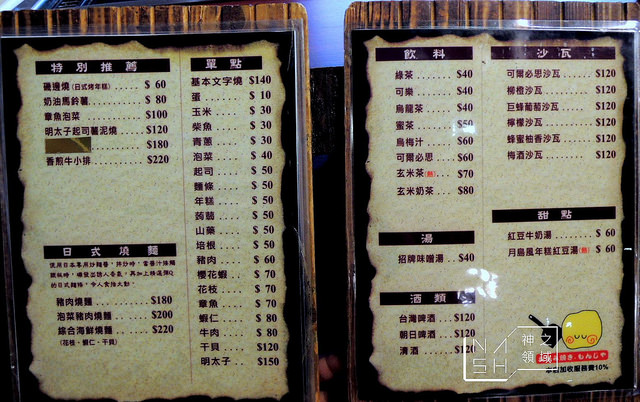 特別推薦
磯邊燒(日式烤年糕)...... $ 60
奶油馬鈴薯........... $ 80
章魚泡菜............ $100
明太子起司薯泥燒..... $120
$180
香煎牛小排.......... $220
日式燒麵
豬肉燒麵........... $180
泡菜豬肉燒麵...... $200
綜合海鮮燒麵...... $220
(花枝、蝦仁、干貝)
單點
基本文字燒 $140
蛋........ $ 10
玉米..... $ 30
柴魚..... $ 30
青蔥..... $ 30
泡菜..... $ 40
起司..... $ 50
麵條..... $ 50
年糕..... $ 50
蒟蒻..... $ 50
山藥..... $ 50
培根..... $ 50
豬肉..... $ 60
櫻花蝦.. $ 70
花枝..... $ 70
章魚..... $ 70
蝦仁..... $ 80
牛肉..... $ 80
干貝..... $120
明太子.. $150
飲料
綠茶....... $40
可樂....... $40
烏龍茶.... $40
蜜茶....... $50
烏梅汁.... $60
可爾必思.. $60
玄米茶(熱).. $70
玄米奶茶... $80
湯
招牌味噌湯.. $40
酒類
台灣啤酒... $120
朝日啤酒... $120
清酒...... $120
沙瓦
可爾必思沙瓦...... $120
柳橙沙瓦.......... $120
巨蜂葡萄沙瓦..... $120
檸檬沙瓦.......... $120
蜂蜜柚香沙瓦..... $120
梅酒沙瓦......... $120
甜點
紅豆牛奶湯........ $ 60
月島風年糕紅豆湯(熱) $ 60
燒き.もんじゃ
加收服務費10%
NSH
神之領域